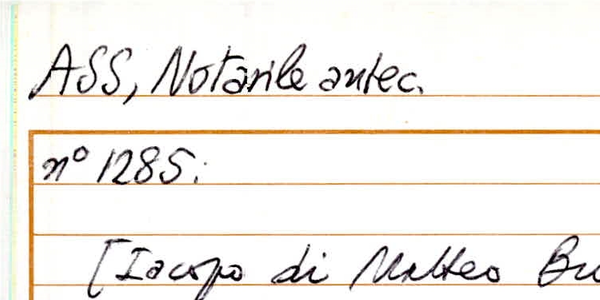 ASS, Notarile antec.
n° 1285.
[Iacopo di Matteo